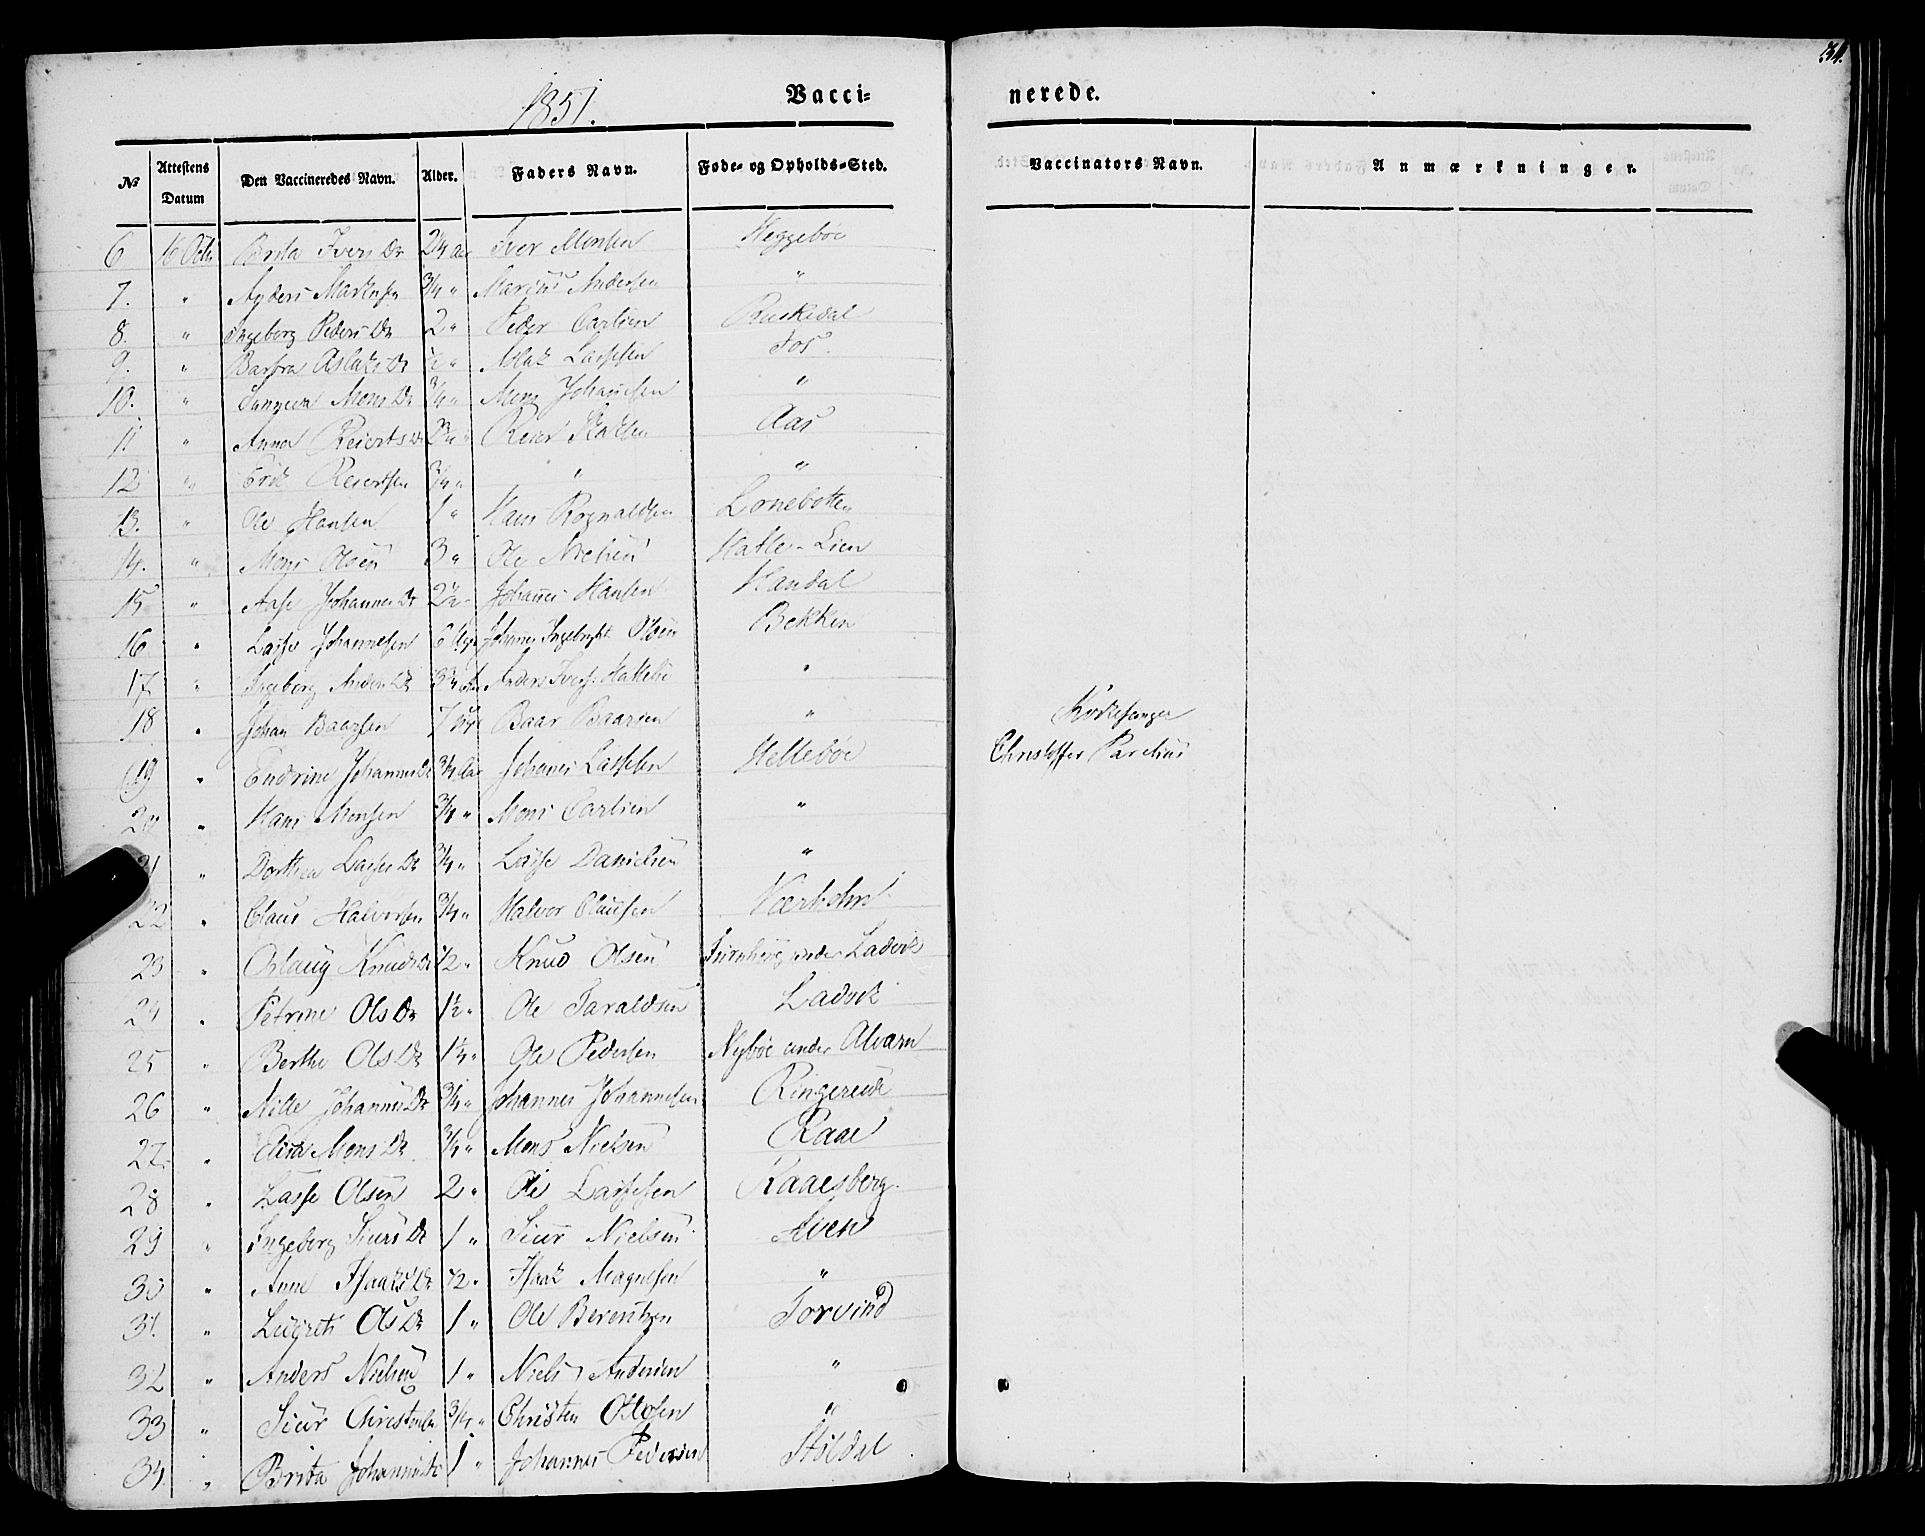 1851.
Vacci-
nerede.
№ Attestens Datum Den Vaccineredes Navn. Alder. Faders Navn. Føde- og Opholds-Sted. Vaccinators Navn. Anmærkninger.
6 16 Octr Brita Ivers Dr 2 1/4 Aar Iver Monsen Heggebøe
7. " Anders Markusen 3/4 " Marcus Andersen "
8. " Ingeborg Peders Dr 2 " Peder Carlsen Ruskedal
9. " Barbra Aslaks Dr 1/2 " Aslak Lassesen Fos.
10. " Sanneva Mons Dr 3/4 " Mons Johannesen "
11 " Anna Reierts Dr Reier Aas
12 " Erik Reiertsen 3/4 " " "
13. " Ole Hansen 1 " Hans Rognaldsen Lonebotten
14. " Mons Olsen 3 " Ole Nielsen Hatle-Lien
15 " Aase Johannes Dr 2 1/2 " Johannes Hansen Handal
16 " Lasse Johannesen 6 Uger Johannes Ingebrigt Olsen Bekken
17 " Ingeborg Anders Dr Anders Ivers. Hattebø "
18 " Johan Baarsen 7 Uger Baar Baarsen "
Kirkesanger
19 " Endrine Johannes Dr 3/4 Aar Johannes Lassesen Hellebøe
Christoffer Parelius
20 " Hans Monsen 3/4 " Mons Carlsen "
21 " Dorthea Lasses Dr 3/4 " Lasse Danielsen "
22 " Claus Halvorsen 3/4 " Halvor Clausen
23 " Oslaug Knuds Dr 1/2 " Knud Olsen under Ladvik
24 " Petrine Ols Dr 1 1/2 " Ole Taraldsen Ladvik
25 " Berthe Ols Dr 1 1/4 " Ole Pedersen Nybøe under Alværn
26 " Nille Johannes Dr 3/4 " Johannes Johannesen Ringereide
27. " Elisa Mons Dr 3/4 " Mons Nielsen Raae
28 " Lasse Olsen 2 " Ole Lassesen Kaaesberg.
29 " Ingeborg Siurs Dr 1 " Siur Nielsen
30 " Anne Isaaks Dr 1/2 " Isaak Magnesen "
31. " Ols Dr 1 " Ole Berentsen Torvind
32 " Anders Nielsen 1 " Niels Andersen "
33 " Siur Christensen 3/4 " Christen Ottosen "
34 " Brita Johannes Dr 1 " Johannes Pedersen Stöldal